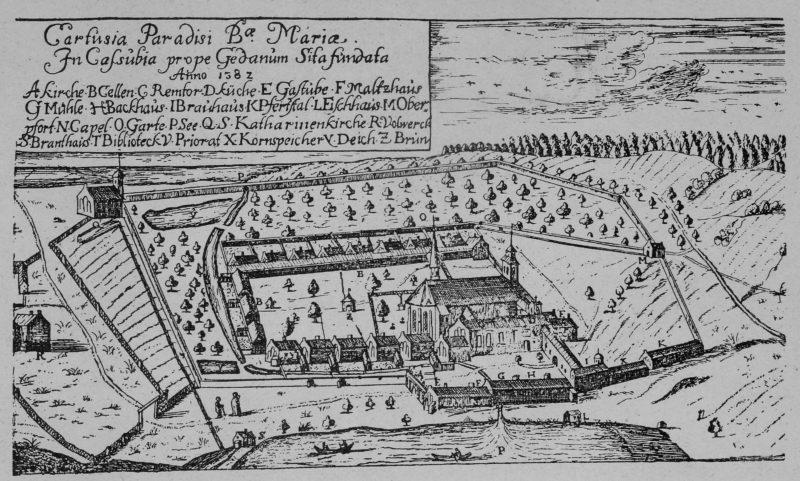 Cartusia Paradisi Bæ Mariæ.
In Cassubia prope Gedanum Sita fundata
Anno 1382
A Kirche · B Cellen · C Remtor · D Küche · E Gastube · F Maltzhaus
G Mühle · H Backhaus · I Brauhaus · K Pferstal · L Eschhaus · M Ober
pfort N Capel · O Garte · P See · Q · S · Katharinenkirche R Volwerck
S Branthaus T Biblioteck V · Priorat X Kornspeicher Y Deich Z Brūn
P
O
M
B
E
R
G H
X
K
S
P